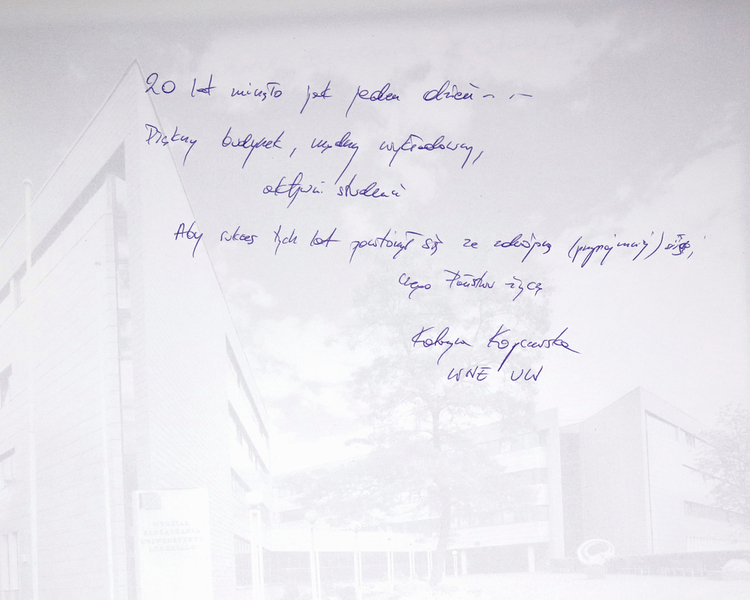 20 lat minęło jak jeden dzień - -
Piękny budynek, mądrzy wykładowcy,
aktywni studenci
Aby sukces tych lat powtórzył się ze zdwojoną (przynajmniej) siłą,
czego Państwu życzę
Katarzyna Kopczewska
WNE UW
WYDZIAŁ
ZARZĄDZANIA
UNIWERSYTETU
ŁÓDZKIEGO